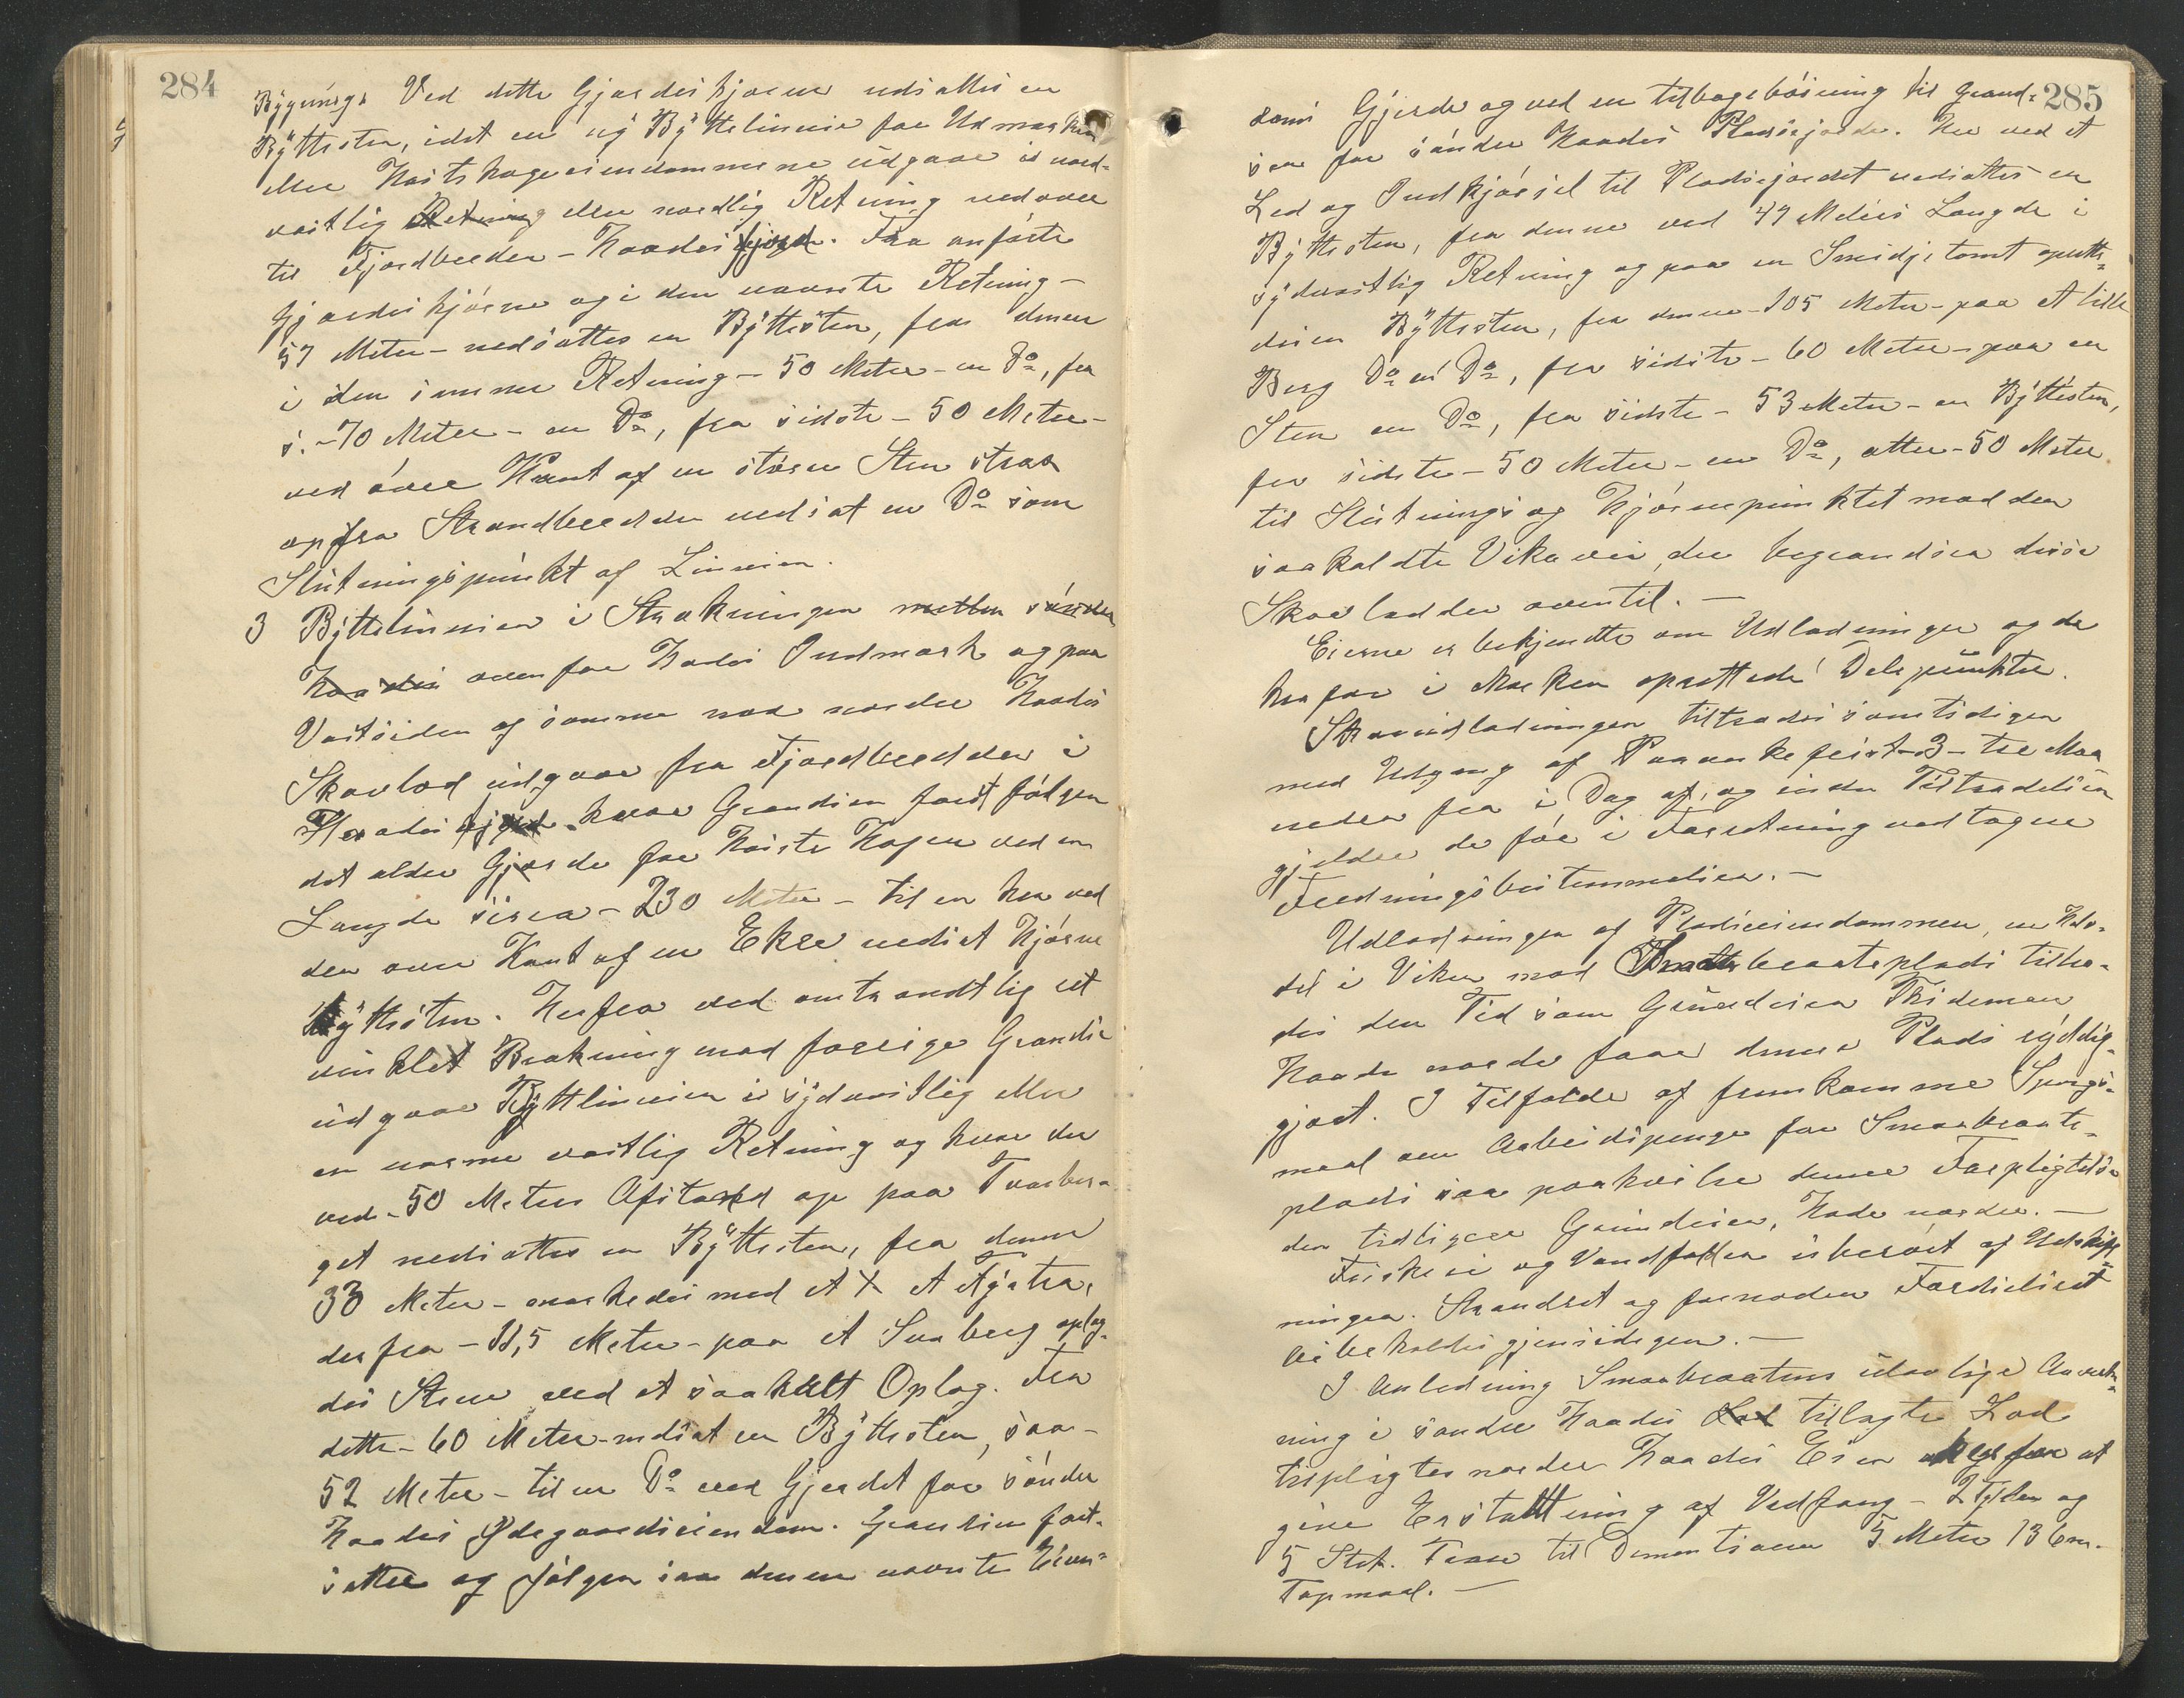 284
Bygnings Ved dette Gjærdeshjørne nedsattes en
Byttesten, idet en ny Byttelinnie for Udmarken
eller Høstehageeiendommene udgaar i nord-
vestlig Retning eller nordlig Retning nedover
til Fjordbredden - Kaadesfjord. Fra anførte
Gjærdeshjørne og i den nævnte Retning -
57 Meter - nedsattes en Byttesten, fra denne
i den samme Retning - 50 Meter - en Do, fra
s. - 70 Meter - en Do, fra sidste - 50 Meter -
ved øvre Kant af en større Sten strax
op fra Strandbredden nedsat en Do som
Slutningspunkt af Linnien.
3 Byttelinnien i Strækningen mellem søndre
Kaades ovenfor Kades Indmark og paa
Vestsiden af samme nær nordre Kaades
Skovlod udgaar fra Fjordbredden i
Kaadesfjord hvor Grændsen først følger
det ældre Gjærde for Høste Hagen ved en
Længde circa - 230 Meter - til en her ved
den øvre Kant af en Ekre nedsat Hjørne
Byttesten. Herfra ved omtrændtlig ret
vinklet Brækning mod forrige Grændse
udgaar Byttlinnien i sydvestlig eller
en nærme vestlig Retning og hvor der
ved - 50 Meters Afstand op paa Tværber-
get nedsattes en Byttesten, fra denne
33 Meter - mærkedes med et X et Fyrtræ,
derfra - 11,5 Meter - paa et Svaberg oplag-
des Stene ved et saakalt Oplag. Fra
dette - 60 Meter - nedsat en Byttesten, saa -
52 Meter - til en Do ved Gjerdet for søndre
Kaades Ødegaardseiendom. Grænsen fort-
sætter og følger saa denne nævnte Eien-
285
doms Gjerde og ved en tilbagebøining til Grænd-
sen for søndre Kaades Pladsgjærde. Her ved et
Led og Indkjørsel til Pladsgjerdet nedsattes en
Byttesten, fra denne ved 47 Meters Længde i
sydvestlig Retning og paa en Smidjetomt opsatt-
des en Byttesten, fra denne - 105 Meter - paa et lille
Berg Do en Do, fra sidste - 60 Meter - paa en
Sten en Do, fra sidste - 53 Meter - en Byttesten,
fra sidste - 50 Meter - en Do, atter - 50 Meter
til Slutnings og Hjørnepunktet mod den
saakaldte Vikavei, der begrændser disse
Skovlodder oventil. -
Eierne er bekjendte om Udlodninger og de
herfor i Marken oprettede Delepunkter.
Skovudlodningen tiltrædes samtidigen
med Udgang af Paaankefrist - 3 - tre Maa
neder fra i Dag af, og inden Tiltrædelsen
gjelder de før i Forretning vedtagne
Fredningsbestemmelser. -
Udlodningen af Pladseiendommen, en Hde-
del i Viken med Smaabraateplads tiltræ-
des den Tid som Grundeier Tideman
Kaade nordre faar denne Plads ryddig-
gjort. I Tilfælde af fremkomme Spørgs-
maal om Arbeidspenge for Smaabraate-
plads saa paahviler denne Forpligtelse
den tidligere Grundeier, Kade nordre. -
Fiskeri og Vandfalden uberørt af Udskift-
ningen. Strandret og fornøden Færdselsret
bibeholdes gjensidigen. -
I Anledning Smaabraatens ulovlige Anvek-
ning i søndre Kaades Lod tillagte Lod
tilpligtes nordre Kaades Eier herfor at
give Erstattning af Vedfang - 2 Tylter og
5 Stk. Træer til Dimentsioner 5 Meter 13 Cm.
Topmaal. -